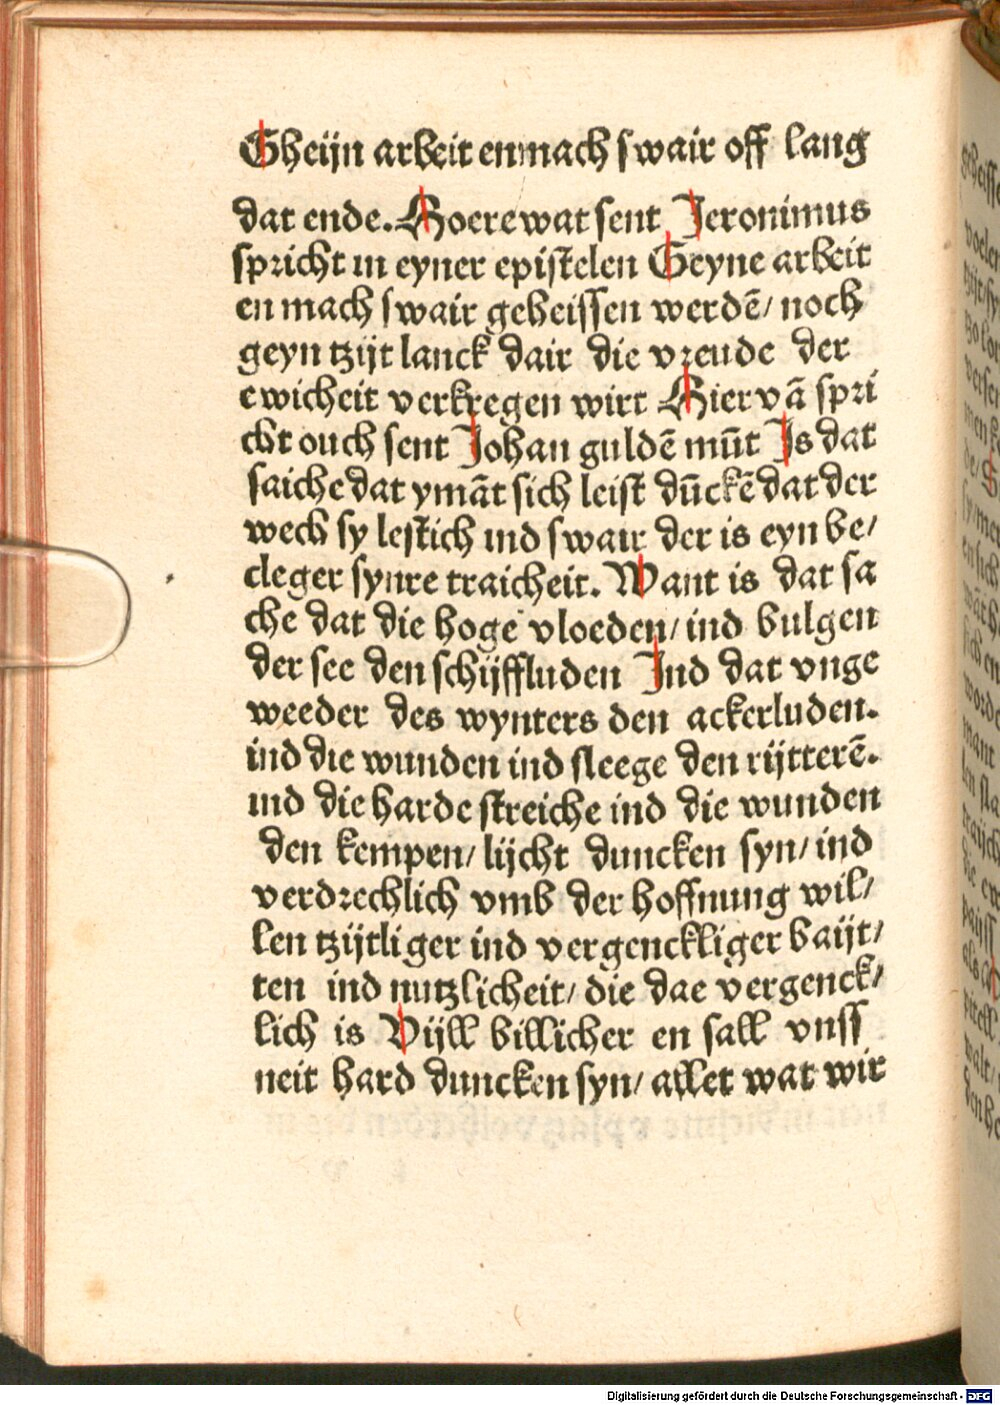 Gheijn arbeit enmach swair off lang
dat ende. Hoere wat sent Jeronimus
spricht in eyner epistelen Geyne arbeit
en mach swair geheissen werdē/ noch
geyn tzijt lanck dair die vreude der
ewicheit verkregen wirt Hier vā spri
cht ouch sent Johan guldē mūt Js dat
saiche dat ymāt sich leist dūckē dat der
wech sy lestich ind swair der is eyn be/
cleger synre traicheit. Want is dat sa
che dat die hoge vloeden/ ind bulgen
der see den schijffluden Jnd dat vnge
weeder des wynters den ackerluden.
ind die wunden ind sleege den rijtterē.
ind die harde streiche ind die wunden
den kempen/ lijcht duncken syn/ ind
verdrechlich vmb der hoffnung wil/
len tzijtliger ind vergenckliger baijt/
ten ind nutzlicheit/ die dae vergenck/
lich is Vijll billicher en sall vnss
neit hard duncken syn/ allet wat wir
Digitalisierung gefördert durch die Deutsche Forschungsgemeinschaft - DFG